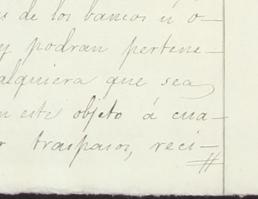 s de los bancos ú o-
y podran pertene-
alquiera que sea
n este objeto á cua-
r traspasos, reci-